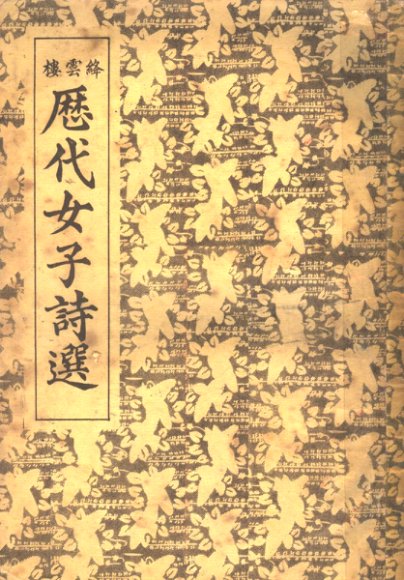 絳雲樓
歷代女子詩選